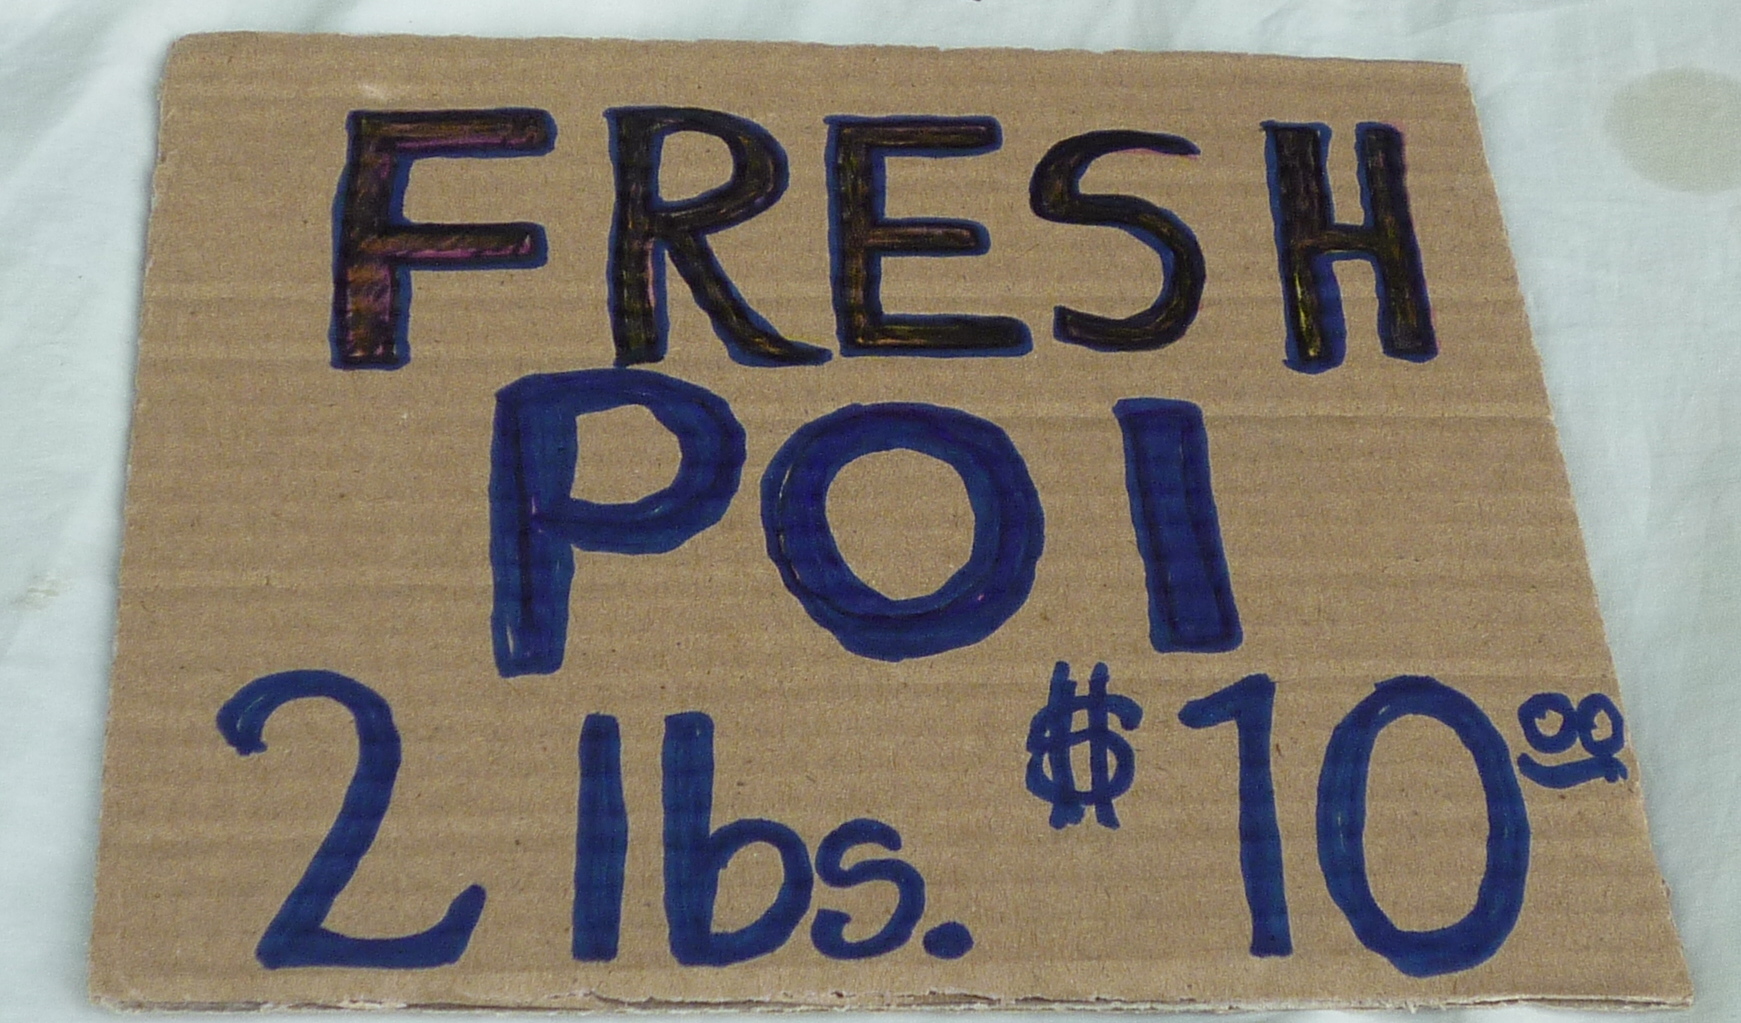 FRESH
POI
2 lbs. $10 00